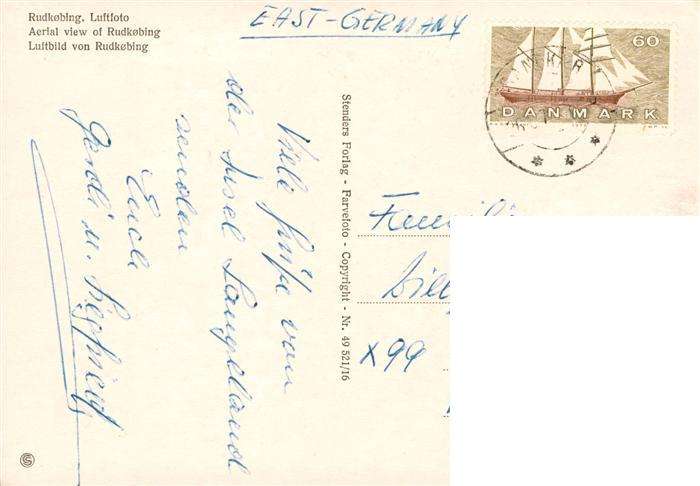 Rudkøbing, Luftfoto
Aerial view of Rudkøbing
Luftbild von Rudkøbing
EAST-GERMANY
60
DANMARK
Viele Grüße von
der Insel Langeland
senden
Euch
Gerdi u. Siegfried
Stenders Forlag - Farvefoto - Copyright - Nr. 49 521/16
X99